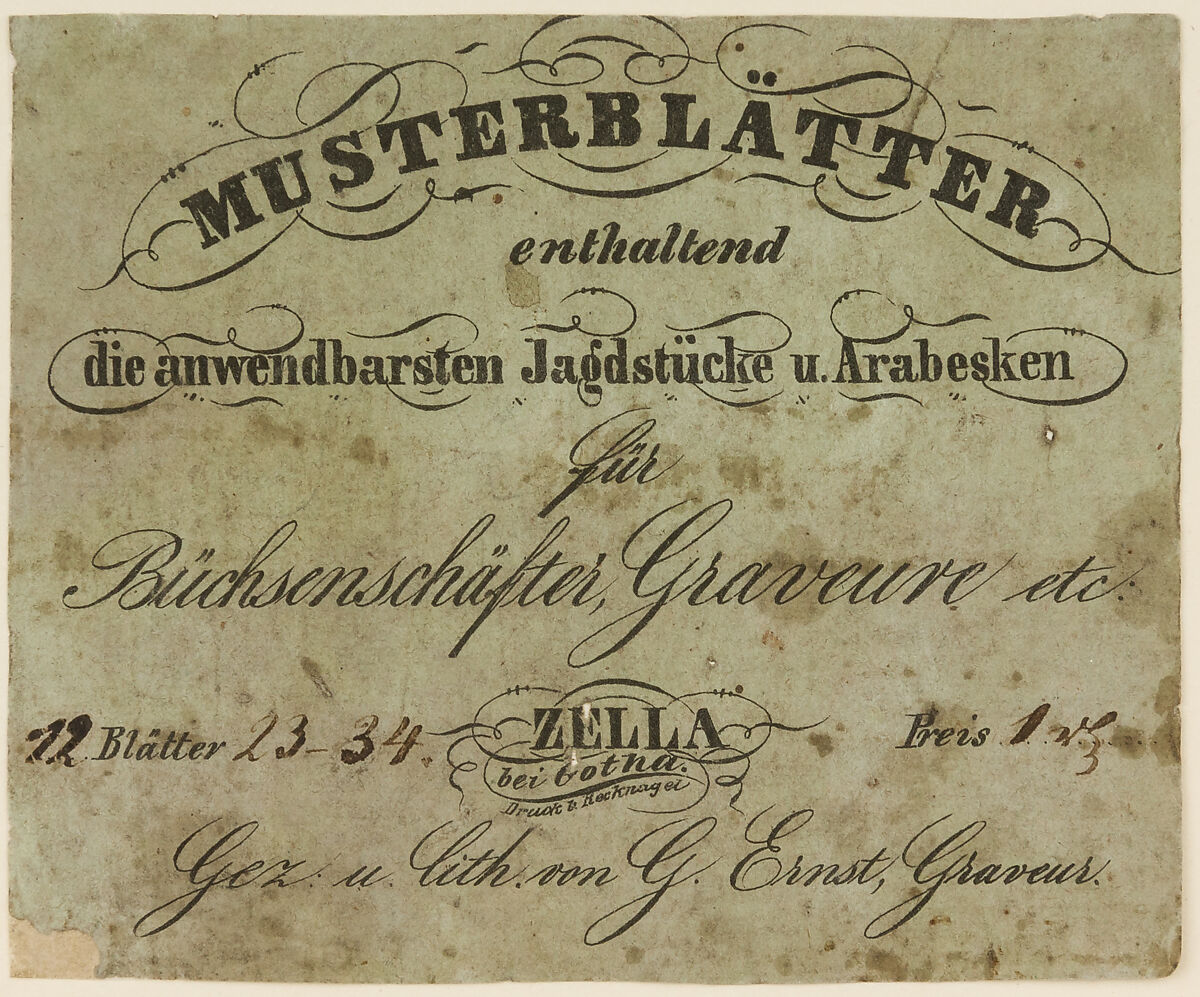 MUSTERBLÄTTER
enthaltend
die anwendbarsten Jagdstücke u. Arabesken
für
Büchsenschäfter, Graveure etc.
12 Blätter 23-34. ZELLA Preis 1
bei Gotha.
Druck b. Recknagel
Gez. u. lith. von G. Ernst, Graveur.